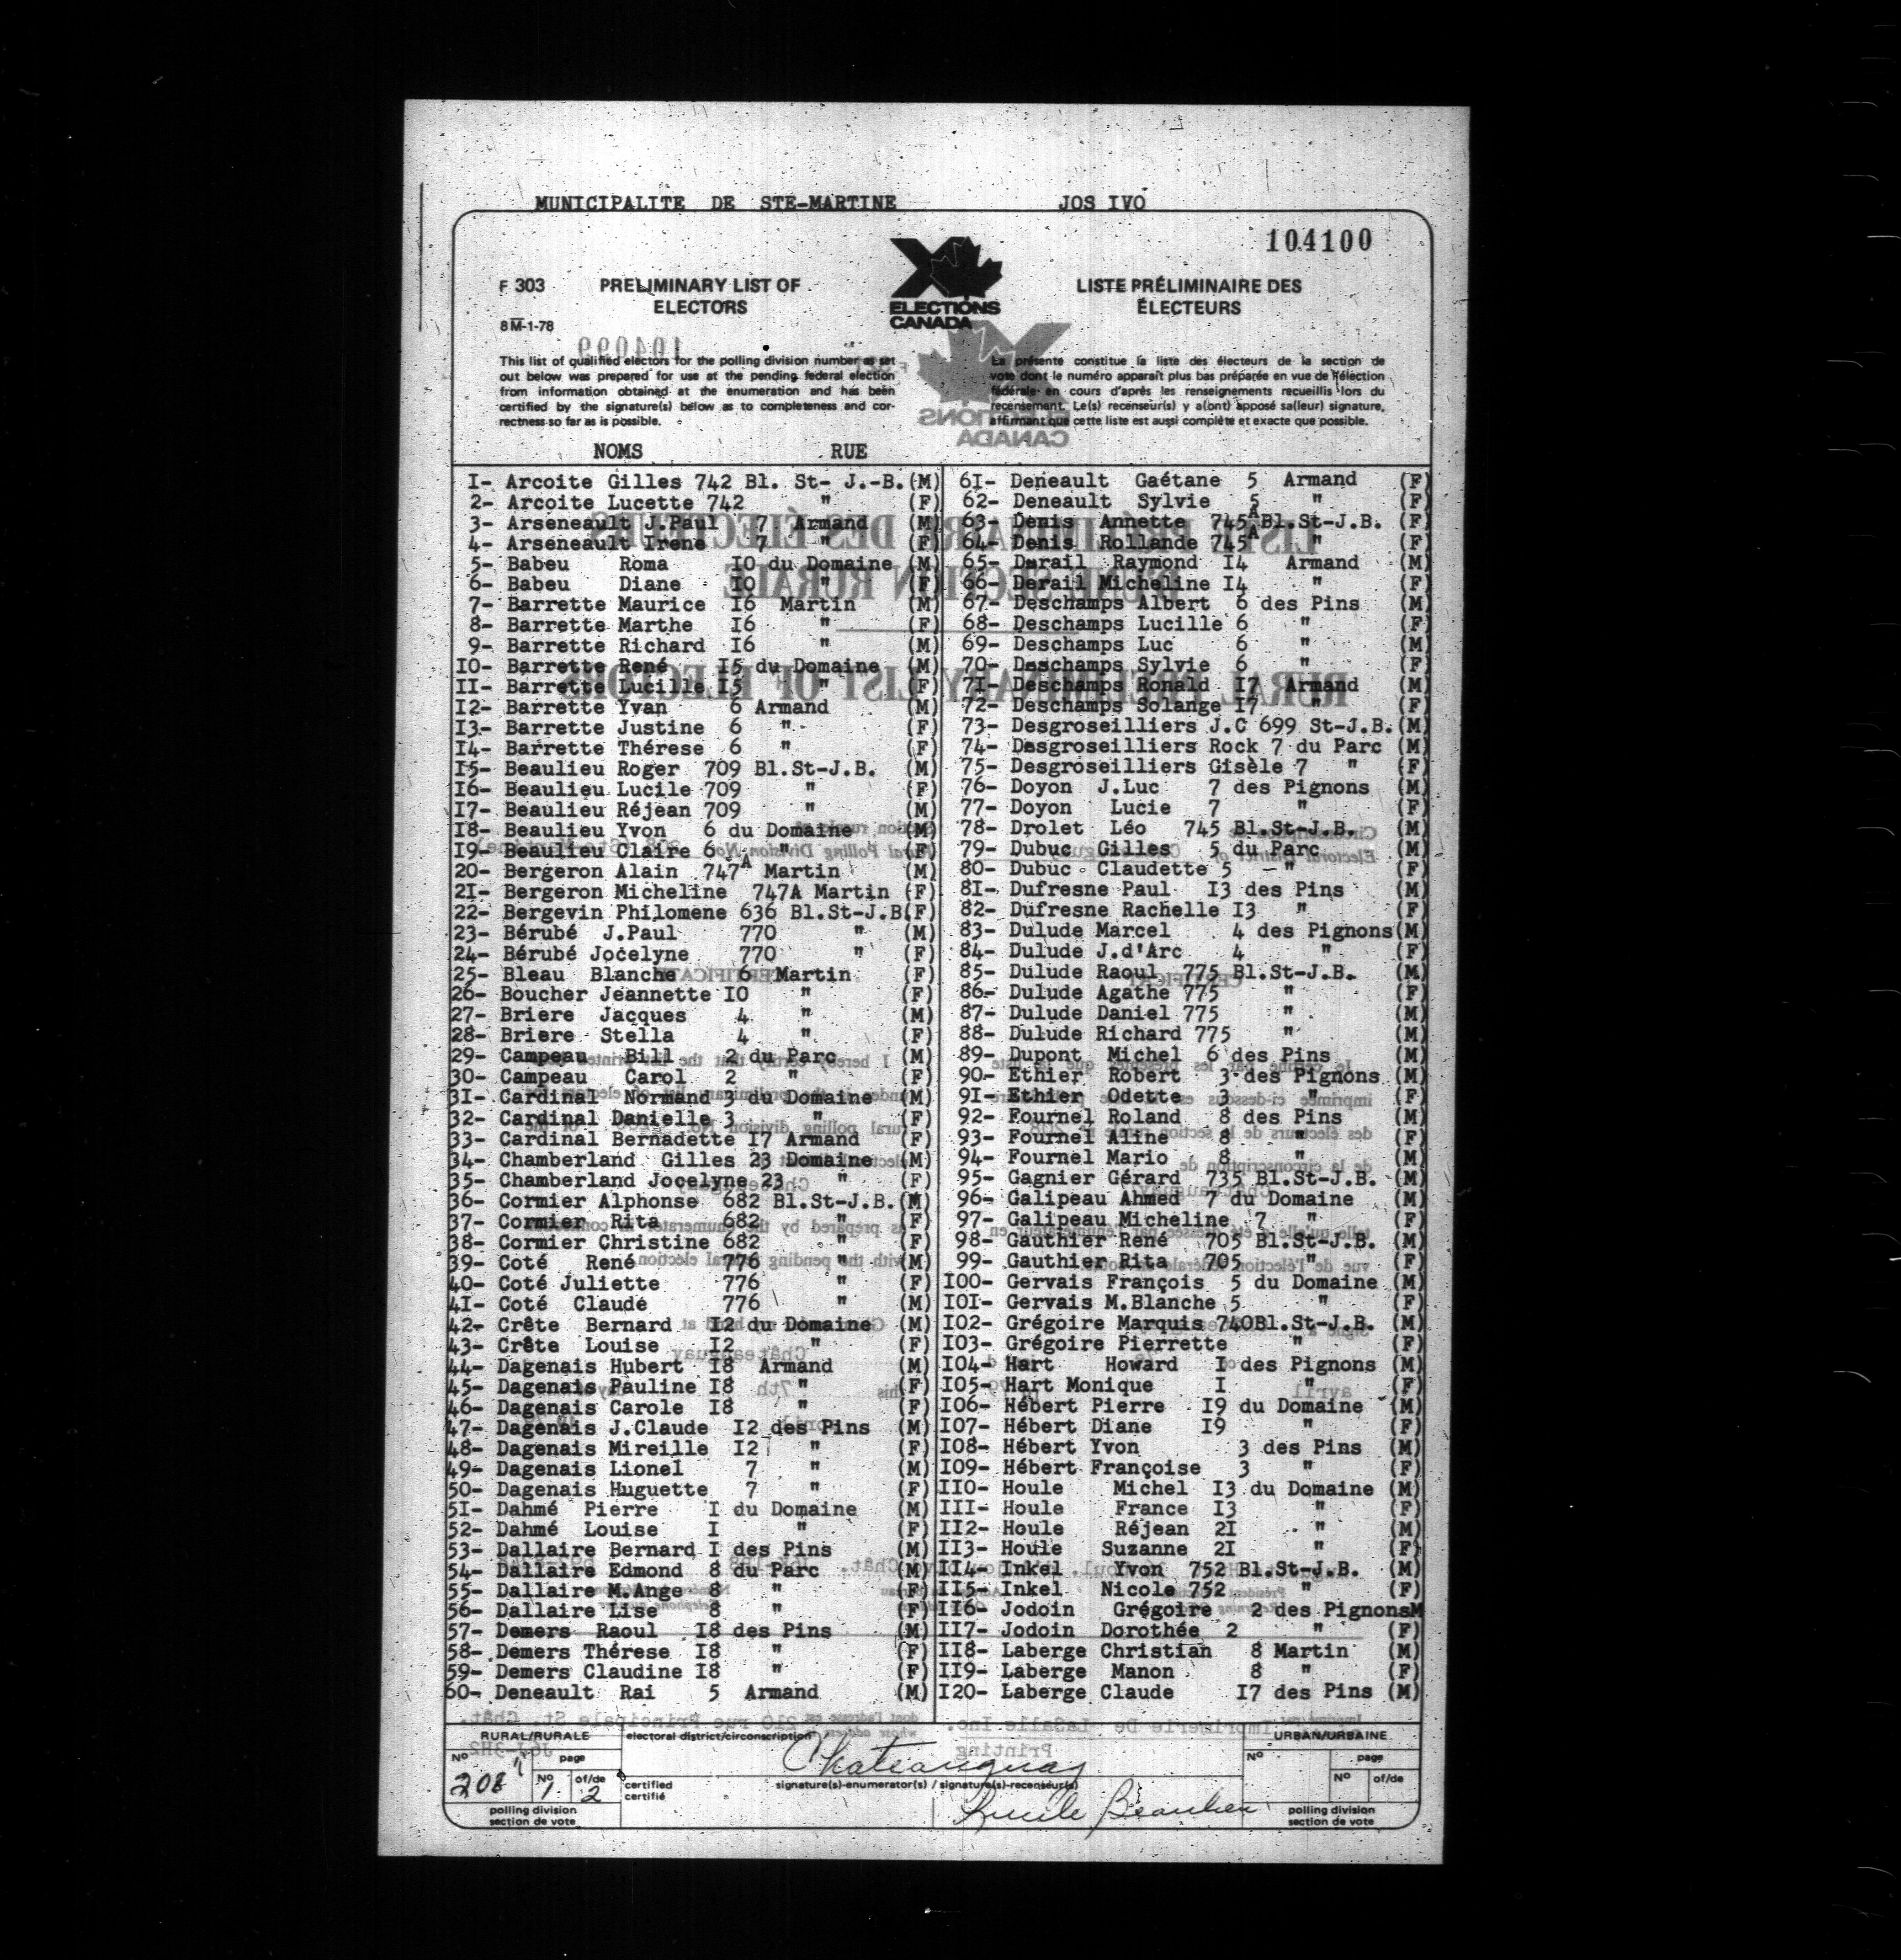 MUNICIPALITE DE STE-MARTINE JOS IVO
104100
F 303 PRELIMINARY LIST OF ELECTORS
8M-1-78
ELECTIONS CANADA
LISTE PRÉLIMINAIRE DES ÉLECTEURS
This list of qualified electors for the polling division number as set
out below was prepared for use at the pending federal election
from information obtained at the enumeration and has been
certified by the signature(s) below as to completeness and cor-
rectness so far as is possible.
La présente constitue la liste des électeurs de la section de
vote dont le numéro apparaît plus bas préparée en vue de l'élection
fédérale en cours d'après les renseignements recueillis lors du
recensement. Le(s) recenseur(s) y a(ont) apposé sa(leur) signature,
affirmant que cette liste est aussi complète et exacte que possible.
NOMS RUE
I- Arcoite Gilles 742 Bl. St- J.-B. (M)
2- Arcoite Lucette 742 " (F)
3- Arseneault J.Paul 7 Armand (M)
4- Arseneault Irene 7 " (F)
5- Babeu Roma IO du Domaine (M)
6- Babeu Diane IO " (F)
7- Barrette Maurice I6 Martin (M)
8- Barrette Marthe I6 " (F)
9- Barrette Richard I6 " (M)
IO- Barrette René I5 du Domaine (M)
II- Barrette Lucille I5 " (F)
I2- Barrette Yvan 6 Armand (M)
I3- Barrette Justine 6 " (F)
I4- Barrette Thérese 6 " (F)
I5- Beaulieu Roger 709 Bl.St-J.B. (M)
I6- Beaulieu Lucile 709 " (F)
I7- Beaulieu Réjean 709 " (M)
I8- Beaulieu Yvon 6 du Domaine (M)
I9- Beaulieu Claire 6 " (F)
20- Bergeron Alain 747A Martin (M)
2I- Bergeron Micheline 747A Martin (F)
22- Bergevin Philomene 636 Bl.St-J.B(F)
23- Bérubé J.Paul 770 " (M)
24- Bérubé Jocelyne 770 " (F)
25- Bleau Blanche 6 Martin (F)
26- Boucher Jeannette IO " (F)
27- Briere Jacques 4 " (M)
28- Briere Stella 4 " (F)
29- Campeau Bill 2 du Parc (M)
30- Campeau Carol 2 " (F)
3I- Cardinal Normand 3 du Domaine (M)
32- Cardinal Danielle 3 " (F)
33- Cardinal Bernadette I7 Armand (F)
34- Chamberland Gilles 23 Domaine (M)
35- Chamberland Jocelyne 23 " (F)
36- Cormier Alphonse 682 Bl.St-J.B. (M)
37- Cormier Rita 682 " (F)
38- Cormier Christine 682 " (F)
39- Coté René 776 " (M)
40- Coté Juliette 776 " (F)
4I- Coté Claude 776 " (M)
42- Crête Bernard I2 du Domaine (M)
43- Crête Louise I2 " (F)
44- Dagenais Hubert I8 Armand (M)
45- Dagenais Pauline I8 " (F)
46- Dagenais Carole I8 " (F)
47- Dagenais J.Claude I2 des Pins (M)
48- Dagenais Mireille I2 " (F)
49- Dagenais Lionel 7 " (M)
50- Dagenais Huguette 7 " (F)
5I- Dahmé Pierre I du Domaine (M)
52- Dahmé Louise I " (F)
53- Dallaire Bernard I des Pins (M)
54- Dallaire Edmond 8 du Parc (M)
55- Dallaire M.Ange 8 " (F)
56- Dallaire Lise 8 " (F)
57- Demers Raoul I8 des Pins (M)
58- Demers Thérese I8 " (F)
59- Demers Claudine I8 " (F)
60- Deneault Rai 5 Armand (M)
6I- Deneault Gaétane 5 Armand (F)
62- Deneault Sylvie 5 " (F)
63- Denis Annette 745A Bl.St-J.B. (F)
64- Denis Rollande 745A " (F)
65- Derail Raymond I4 Armand (M)
66- Derail Micheline I4 " (F)
67- Deschamps Albert 6 des Pins (M)
68- Deschamps Lucille 6 " (F)
69- Deschamps Luc 6 " (M)
70- Deschamps Sylvie 6 " (F)
7I- Deschamps Ronald I7 Armand (M)
72- Deschamps Solange I7 " (F)
73- Desgroseilliers J.C 699 St-J.B. (M)
74- Desgroseilliers Rock 7 du Parc (M)
75- Desgroseilliers Gisèle 7 " (F)
76- Doyon J.Luc 7 des Pignons (M)
77- Doyon Lucie 7 " (F)
78- Drolet Léo 745 Bl.St-J.B. (M)
79- Dubuc Gilles 5 du Parc (M)
80- Dubuc Claudette 5 " (F)
8I- Dufresne Paul I3 des Pins (M)
82- Dufresne Rachelle I3 " (F)
83- Dulude Marcel 4 des Pignons(M)
84- Dulude J.d'Arc 4 " (F)
85- Dulude Raoul 775 Bl.St-J.B. (M)
86- Dulude Agathe 775 " (F)
87- Dulude Daniel 775 " (M)
88- Dulude Richard 775 " (M)
89- Dupont Michel 6 des Pins (M)
90- Ethier Robert 3 des Pignons (M)
9I- Ethier Odette 3 " (F)
92- Fournel Roland 8 des Pins (M)
93- Fournel Aline 8 " (F)
94- Fournel Mario 8 " (M)
95- Gagnier Gérard 735 Bl.St-J.B. (M)
96- Galipeau Ahmed 7 du Domaine (M)
97- Galipeau Micheline 7 " (F)
98- Gauthier René 705 Bl.St-J.B. (M)
99- Gauthier Rita 705 " (F)
IOO- Gervais François 5 du Domaine (M)
IOI- Gervais M.Blanche 5 " (F)
IO2- Grégoire Marquis 740Bl.St-J.B. (M)
IO3- Grégoire Pierrette " (F)
IO4- Hart Howard I des Pignons (M)
IO5- Hart Monique I " (F)
IO6- Hébert Pierre I9 du Domaine (M)
IO7- Hébert Diane I9 " (F)
IO8- Hébert Yvon 3 des Pins (M)
IO9- Hébert Françoise 3 " (F)
IIO- Houle Michel I3 du Domaine (M)
III- Houle France I3 " (F)
II2- Houle Réjean 2I " (M)
II3- Houle Suzanne 2I " (F)
II4- Inkel Yvon 752 Bl.St-J.B. (M)
II5- Inkel Nicole 752 " (F)
II6- Jodoin Grégoire 2 des PignonsM
II7- Jodoin Dorothée 2 " (F)
II8- Laberge Christian 8 Martin (M)
II9- Laberge Manon 8 " (F)
I20- Laberge Claude I7 des Pins (M)
RURAL/RURALE
No page
208 No 1 of/de 2
polling division
section de vote
electoral district/circonscription
Chateauguay
certified
certifié
signature(s)-enumerator(s) / signature(s)-recenseur(s)
Lucile Beaulieu
URBAN/URBAINE
No page
No of/de
polling division
section de vote